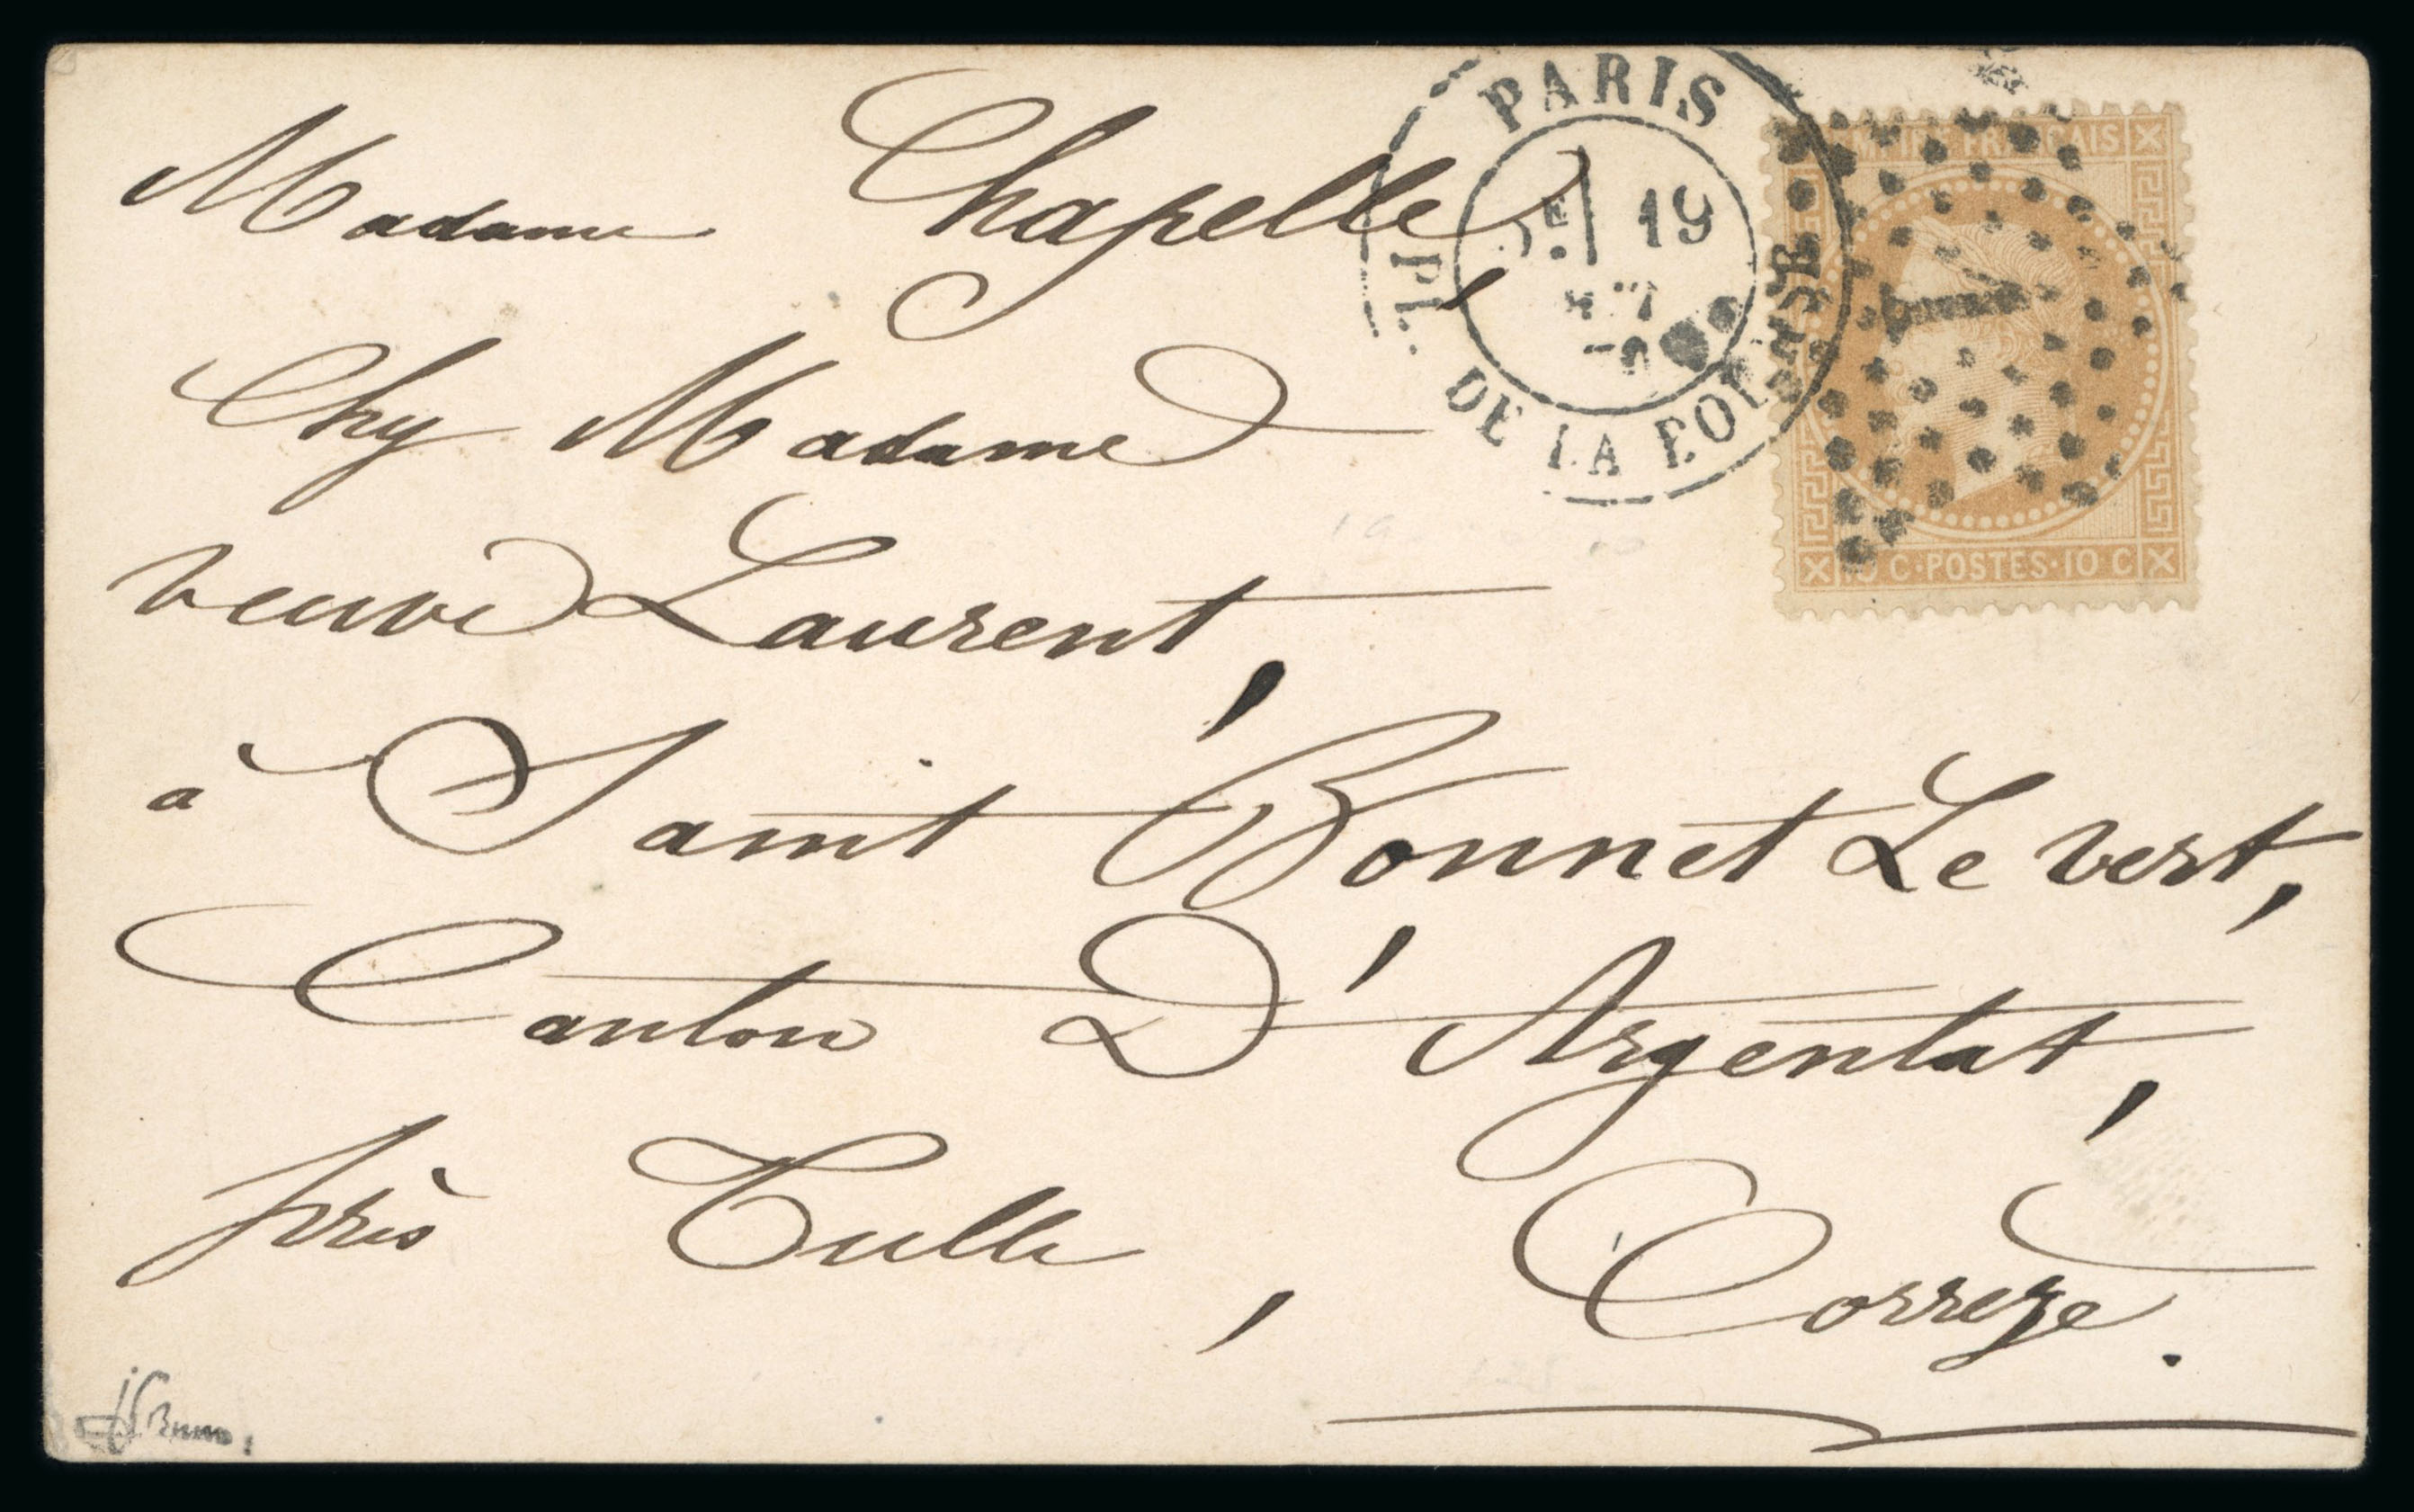 Madame Chapelle,
Chy Madame
veuve Laurent,
à Saint Bonnet Le vert,
Canton D'Argentat,
près Tulle, Correze.
PARIS
19
PL. DE LA BOURSE
EMPIRE FRANÇAIS
1
10 C·POSTES·10 C